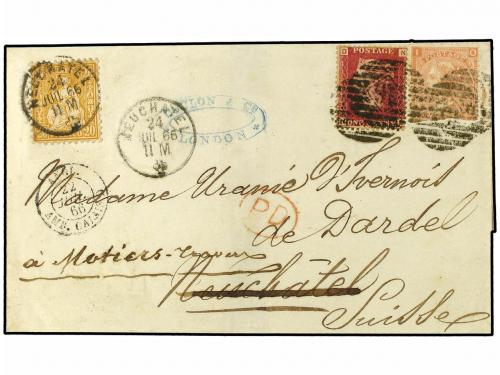 NEUCHATEL
24
JUIL 66
11 M
20
NEUCHATEL
24
JUIL 66
11 M
LONDON
POSTAGE
POSTAGE
22
66
AMB. CALAIS
PD
Madame Uranie d'Ivernois
de Dardel
à Motiers-Travers
Neuchâtel
Suisse